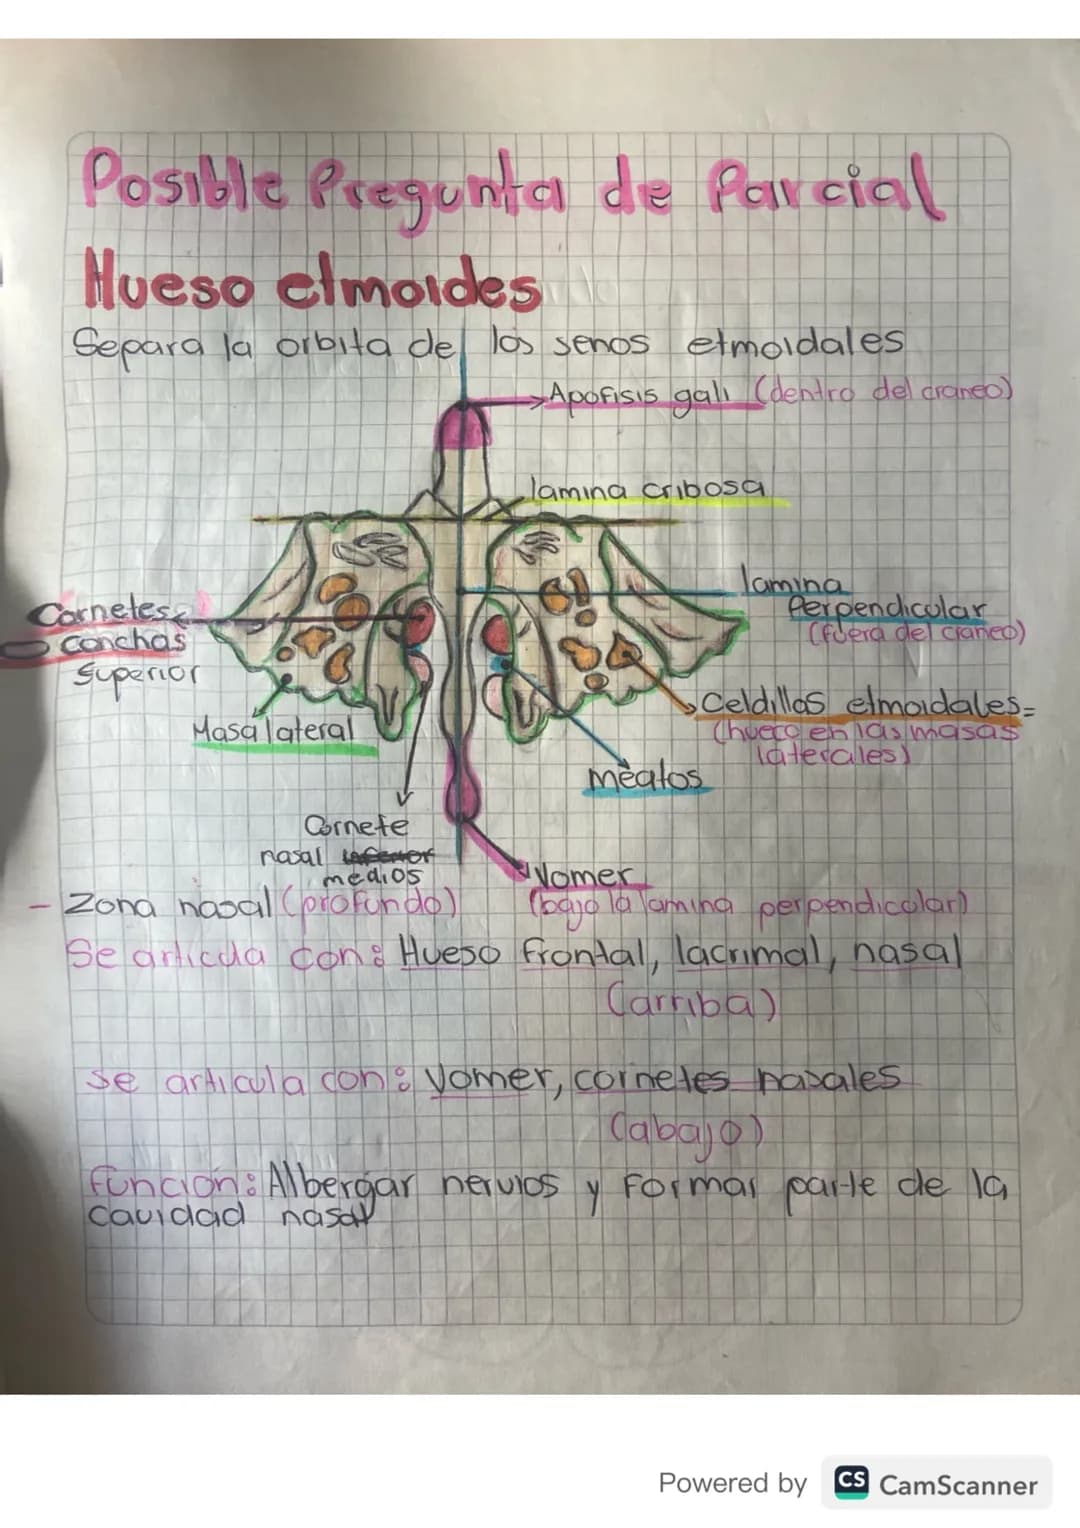 Posible Pregunta de Parcial
Hueso etmoides
Separa la orbita de los senos etmoidales
Apofisis gali (dentro del craneo)
lamina cribosa
lamina
Perpendicular
(fuera del craneo)
Cornetes
o conchas
superior
Celdillas etmoidales=
(hueco en las masas
laterales)
Masa lateral
meatos
Cornete
nasal inferior
medios
Vomer
(bajo la lamina perpendicular)
- Zona nasal (profundo)
Se articula con: Hueso frontal, lacrimal, nasal
(arriba)
se articula con: Vomer, cornetes nasales
(abajo)
función: Albergar nervios y formar parte de la
cavidad nasal
Powered by CS CamScanner